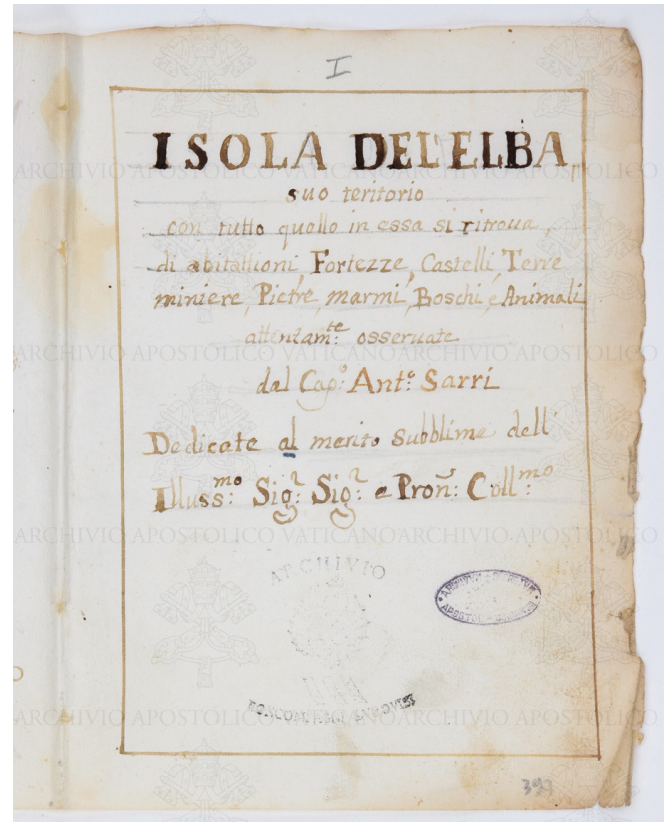 I
ISOLA DEL'ELBA
suo teritorio
con tutto quallo in essa si ritroua,
di abitattioni, Fortezze, Castelli, Terre
miniere, Pietre, marmi, Boschi, é Animali
attentam:te osseruate
dal Cap:o Ant:o Sarri
Dedicate al merito subblime dell'
Illuss:mo Sig:r Sig:r e Pron: Coll:mo
ARCHIVIO
BONCOMPAGNI
399
ARCHIVIO APOSTOLICO VATICANO